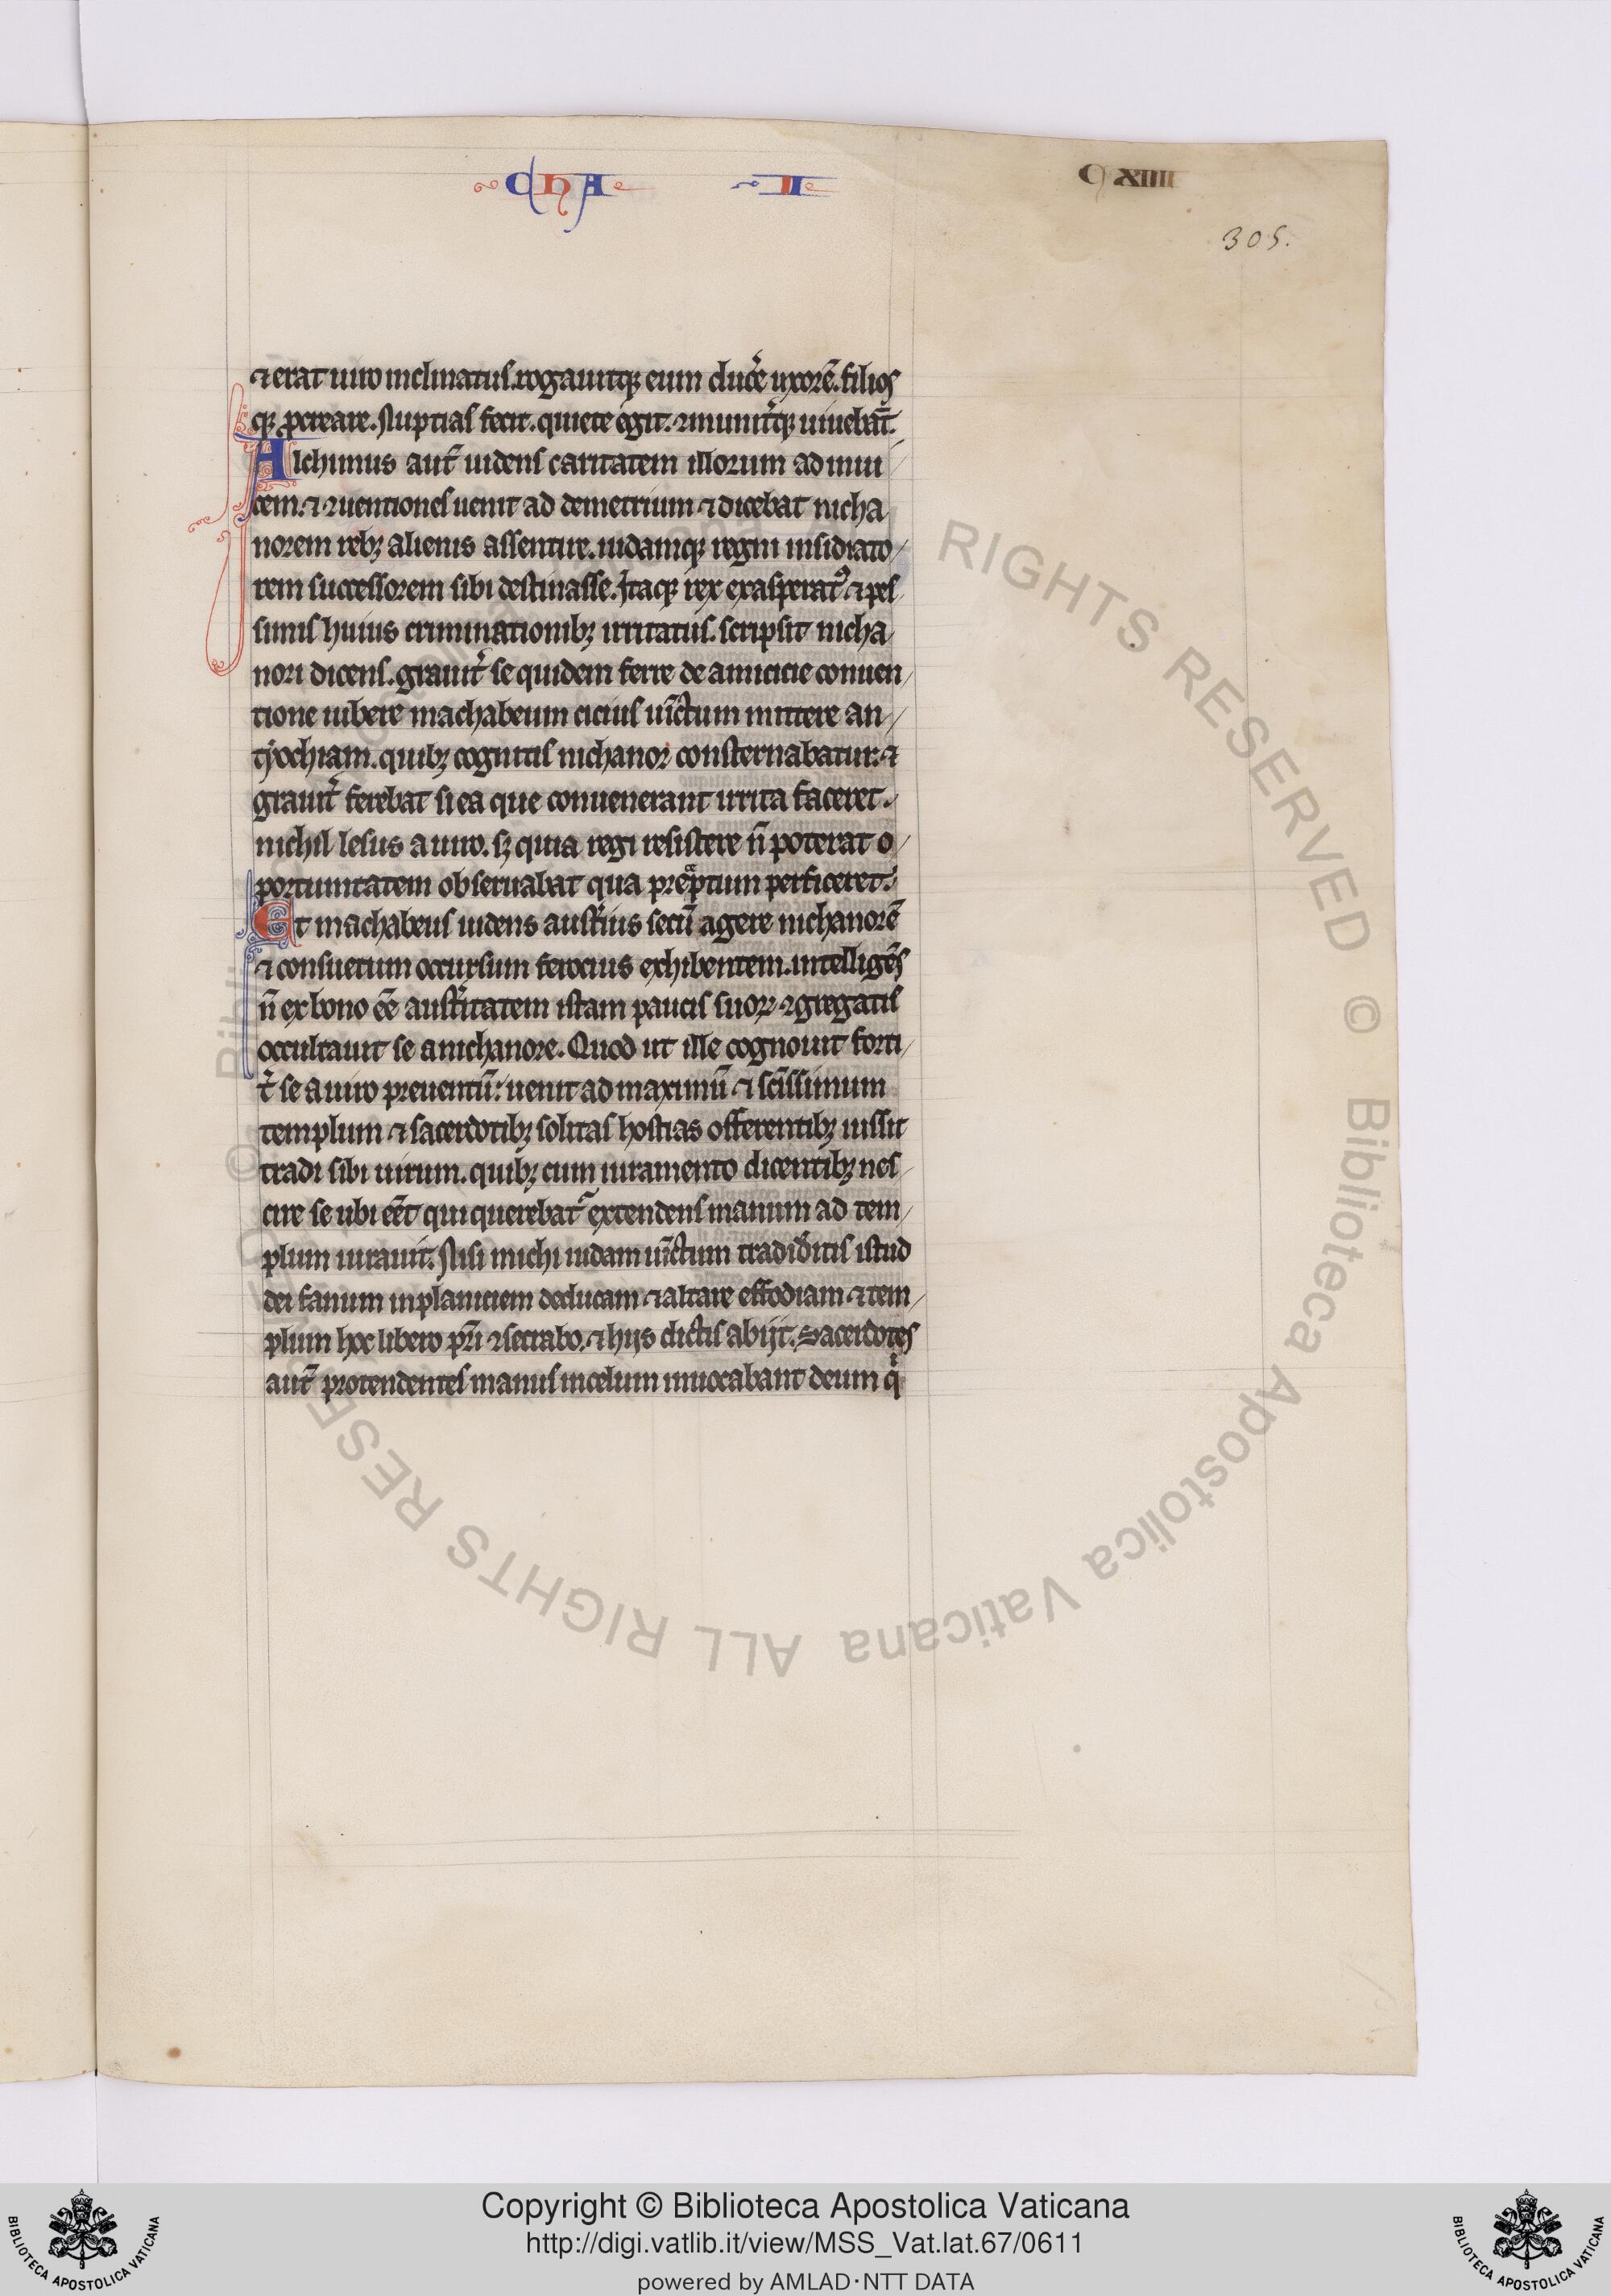 CHA II
C XIIII
305.
⁊ erat uiro inclinatus. rogauitqꝫ eum ducẽ uxorẽ. filios
qꝫ ꝓcreare. Nuptias fecit. quiete egit. ꝯmunit̾qꝫ uiuebat̃.
Alchimus aut̃ uidens caritatem illorum ad inui
cem. ⁊ ꝯuentiones uenit ad demetrium ⁊ dicebat nicha
norem rebꝫ alienis assentire. iudamqꝫ regni insidiato
rem successorem sibi destinasse. Itaqꝫ rex exasperatꝰ ⁊ pes
simis huius criminationibꝫ irritatus. scripsit nicha
nori dicens. grauit̾ se quidem ferre de amicicie conuen
tione iubere machabeum cicius uĩctum mittere an
tyochiam. quibꝫ cognitis nichanor consternabatur. ⁊
grauit̾ ferebat si ea que conuenerant irrita faceret.
nichil lesus a uiro. sꝫ quia regi resistere ñ poterat o
portunitatem obseruabat qua preceptum perficeret.
Et machabeus uidens aust̾ius secũ agere nichanorẽ
⁊ consuetum occursum ferocius exhibentem. intelligẽs
ñ ex bono eẽ aust̾itatem istam paucis suoꝝ ꝯgregatis
occultauit se a nichanore. Quod ut ille cognouit forti
t̾ se a uiro preuentũ: uenit ad maximũ ⁊ scĩssimum
templum ⁊ sacerdotibꝫ solitas hostias offerentibꝫ iussit
tradi sibi uirum. quibꝫ cum iuramento dicentibꝫ nes
cire se ubi eẽt qui querebat᷑ extendens manum ad tem
plum iurauit. Nisi michi iudam uĩctum tradid̾itis istud
dei fanum in planiciem deducam ⁊ altare effodiam ⁊ tem
plum hoc libero pr̃i ꝯsecrabo. ⁊ hijs dictis abijt. Sacerdotes
aut̃ protendentes manus in celum inuocabant deum qͥ
© Biblioteca Apostolica Vaticana ALL RIGHTS RESERVED
Copyright © Biblioteca Apostolica Vaticana
http://digi.vatlib.it/view/MSS_Vat.lat.67/0611
powered by AMLAD·NTT DATA
BIBLIOTECA APOSTOLICA VATICANA
BIBLIOTECA APOSTOLICA VATICANA